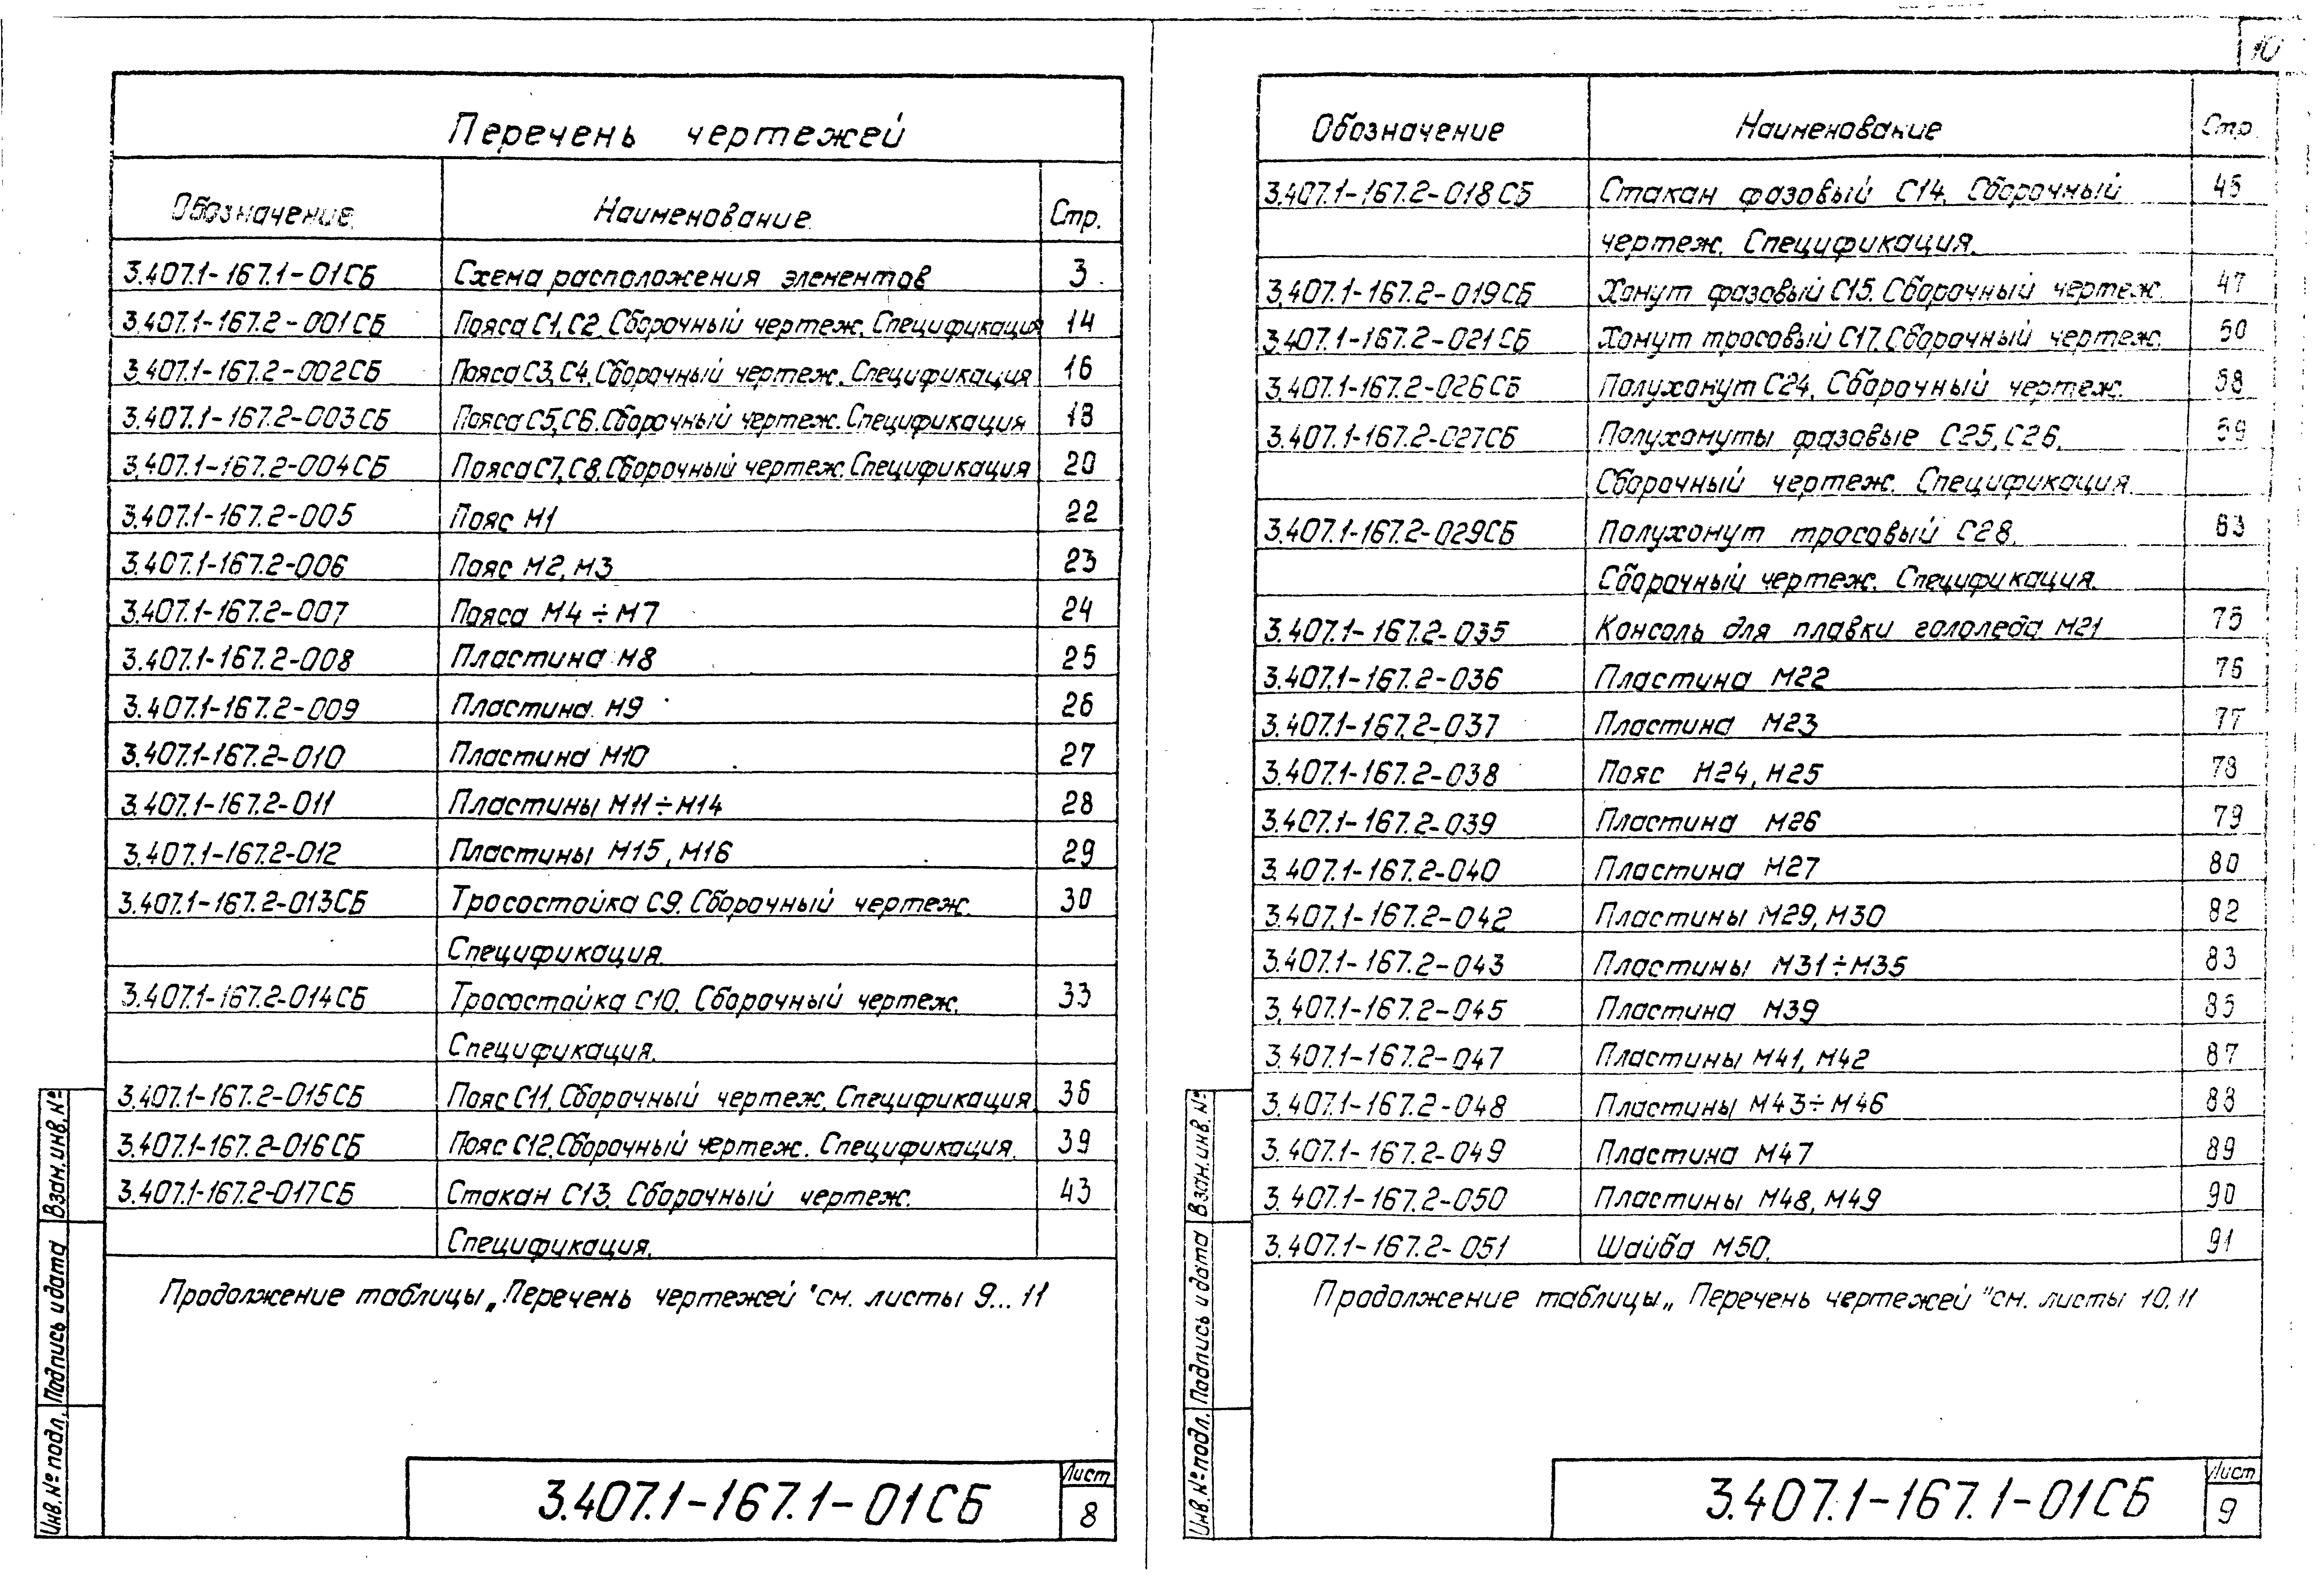 10
Перечень чертежей
Обозначение Наименование Стр.
3.407.1-167.1-01СБ Схема расположения элементов 3
3.407.1-167.2-001СБ Пояса С1,С2. Сборочный чертеж. Спецификация 14
3.407.1-167.2-002СБ Пояса С3,С4. Сборочный чертеж. Спецификация 16
3.407.1-167.2-003СБ Пояса С5,С6. Сборочный чертеж. Спецификация 18
3.407.1-167.2-004СБ Пояса С7,С8. Сборочный чертеж. Спецификация 20
3.407.1-167.2-005 Пояс М1 22
3.407.1-167.2-006 Пояс М2, М3 23
3.407.1-167.2-007 Пояса М4÷М7 24
3.407.1-167.2-008 Пластина М8 25
3.407.1-167.2-009 Пластина М9 26
3.407.1-167.2-010 Пластина М10 27
3.407.1-167.2-011 Пластины М11÷М14 28
3.407.1-167.2-012 Пластины М15, М16 29
3.407.1-167.2-013СБ Тросостойка С9. Сборочный чертеж. 30
Спецификация.
3.407.1-167.2-014СБ Тросостойка С10. Сборочный чертеж. 33
Спецификация.
3.407.1-167.2-015СБ Пояс С11. Сборочный чертеж. Спецификация. 36
3.407.1-167.2-016СБ Пояс С12. Сборочный чертеж. Спецификация. 39
3.407.1-167.2-017СБ Стакан С13. Сборочный чертеж. 43
Спецификация.
Продолжение таблицы „Перечень чертежей" см. листы 9...11
Взан.инв.№
Подпись и дата
Инв.№ подл.
3.407.1-167.1-01СБ
Лист
8
Обозначение Наименование Стр.
3.407.1-167.2-018СБ Стакан фазовый С14. Сборочный 45
чертеж. Спецификация.
3.407.1-167.2-019СБ Хомут фазовый С15. Сборочный чертеж. 47
3.407.1-167.2-021СБ Хомут тросовый С17. Сборочный чертеж. 50
3.407.1-167.2-026СБ Полухомут С24. Сборочный чертеж. 58
3.407.1-167.2-027СБ Полухомуты фазовые С25, С26. 59
Сборочный чертеж. Спецификация.
3.407.1-167.2-029СБ Полухомут тросовый С28. 63
Сборочный чертеж. Спецификация.
3.407.1-167.2-035 Консоль для плавки гололеда М21 75
3.407.1-167.2-036 Пластина М22 76
3.407.1-167.2-037 Пластина М23 77
3.407.1-167.2-038 Пояс М24, М25 78
3.407.1-167.2-039 Пластина М26 79
3.407.1-167.2-040 Пластина М27 80
3.407.1-167.2-042 Пластины М29, М30 82
3.407.1-167.2-043 Пластины М31÷М35 83
3.407.1-167.2-045 Пластина М39 85
3.407.1-167.2-047 Пластины М41, М42 87
3.407.1-167.2-048 Пластины М43÷М46 88
3.407.1-167.2-049 Пластина М47 89
3.407.1-167.2-050 Пластины М48, М49 90
3.407.1-167.2-051 Шайба М50. 91
Продолжение таблицы „Перечень чертежей" см. листы 10, 11
Взан.инв.№
Подпись и дата
Инв.№ подл.
3.407.1-167.1-01СБ
Лист
9